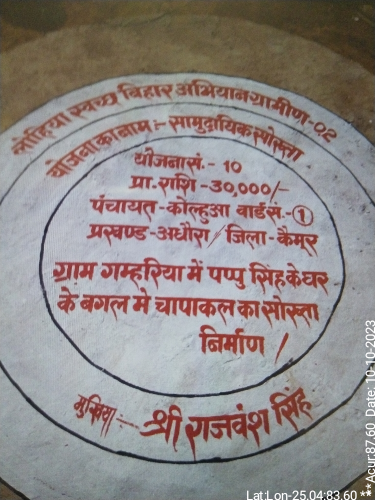 लोहिया स्वच्छ बिहार अभियान ग्रामीण-०२
योजना का नाम :- सामुदायिक सोख्ता
योजना सं. - 10
प्रा. राशि - 30,000/-
पंचायत - कोल्हुआ वार्ड सं. - 1
प्रखण्ड - अधौरा / जिला - कैमूर
ग्राम गम्हरिया में पप्पु सिंह के घर
के बगल मे चापाकल का सोख्ता
निर्माण /
मुखिया :- श्री राजवंश सिंह
Lat:Lon-25.04:83.60 ***Acur:87.60 Date: 10-10-2023